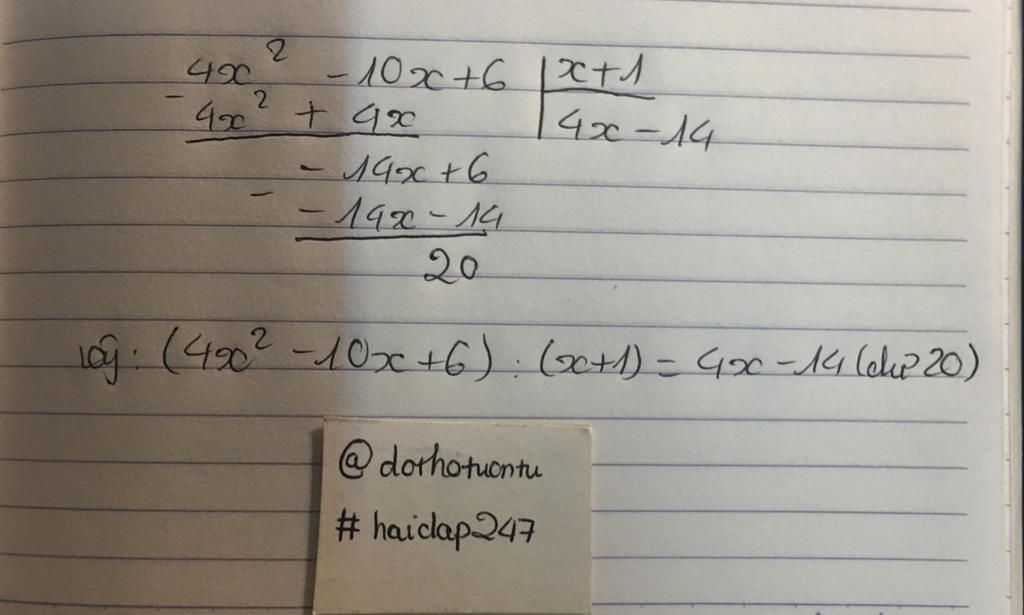 4x² - 10x + 6 | x + 1
- 4x² + 4x | 4x - 14
- 14x + 6
- - 14x - 14
20
Vậy: (4x² - 10x + 6) : (x + 1) = 4x - 14 (dư 20)
@dothotuontu
# haiclap247